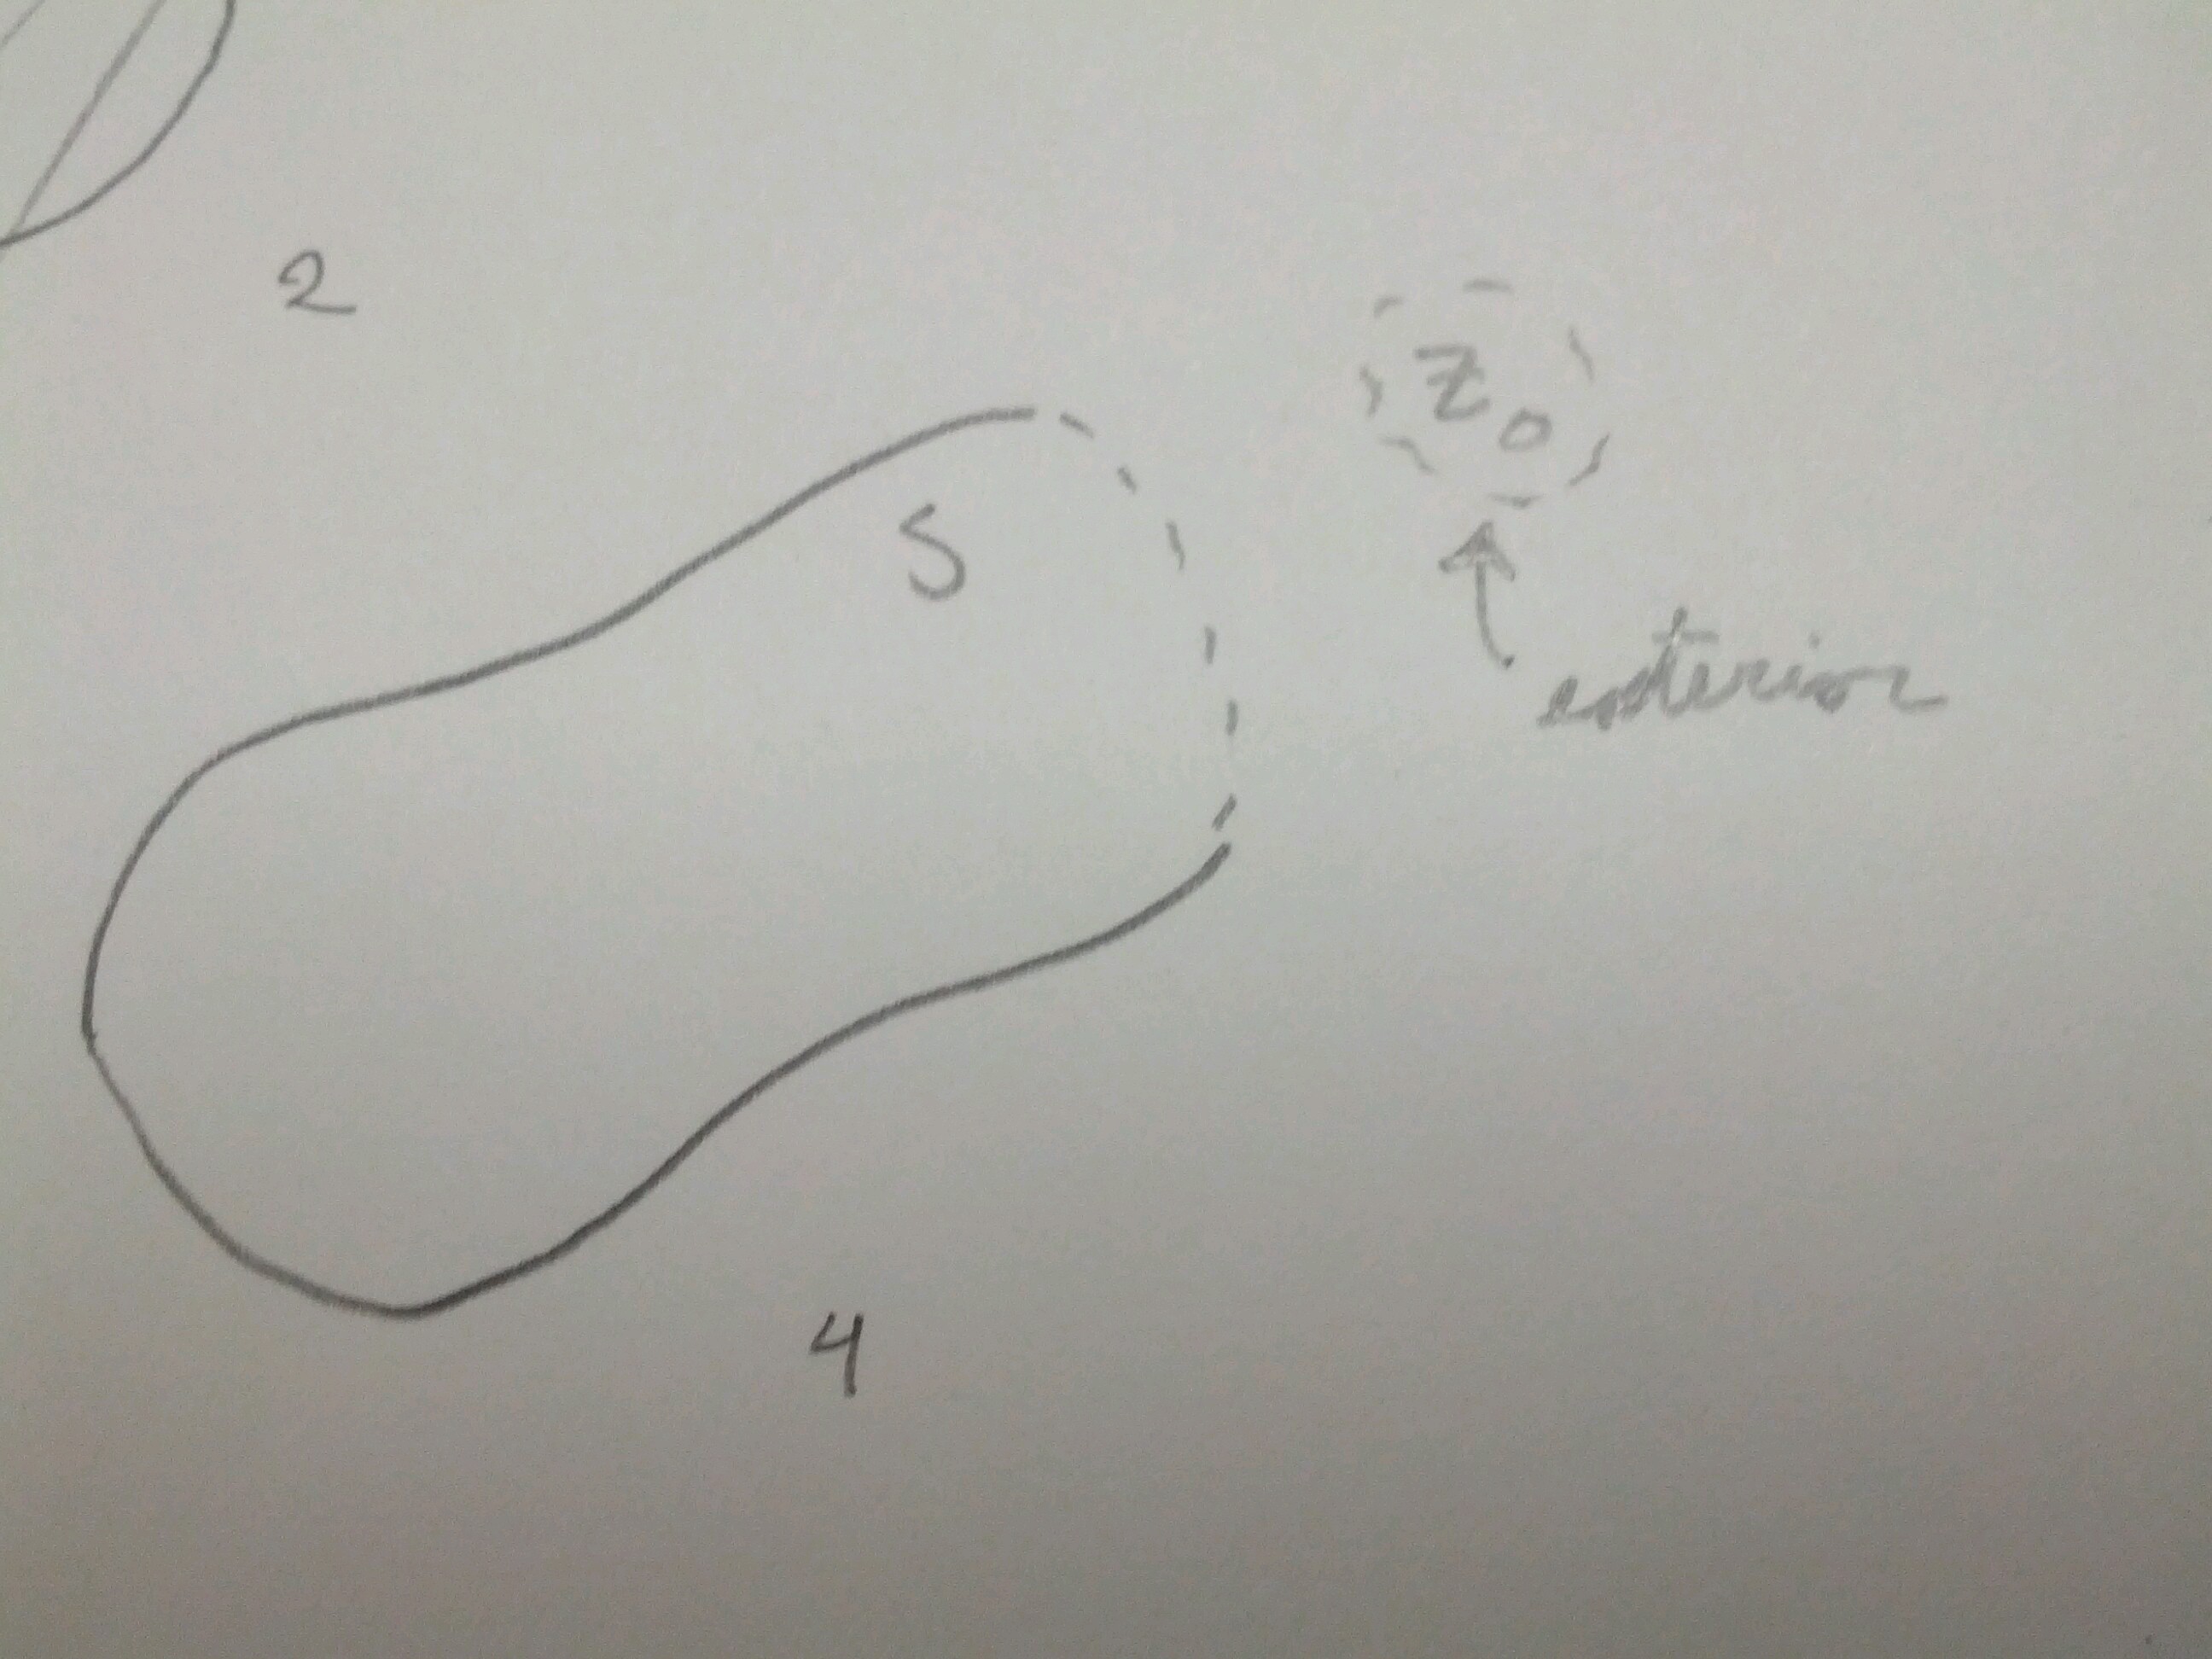 2
Z₀
S
exterior
4